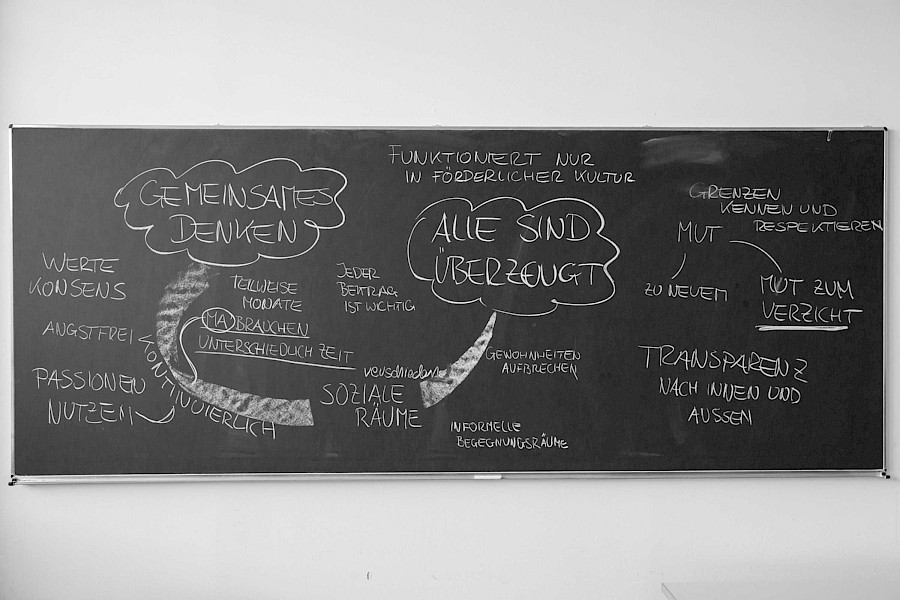 FUNKTIONIERT NUR
IN FÖRDERLICHER KULTUR
GEMEINSAMES
DENKEN
ALLE SIND
ÜBERZEUGT
WERTE
KONSENS
ANGSTFREI
PASSIONEN
NUTZEN
KONTINUIERLICH
TEILWEISE
MONATE
MA BRAUCHEN
UNTERSCHIEDLICH ZEIT
JEDER
BEITRAG
IST WICHTIG
verschiedene
SOZIALE
RÄUME
GEWOHNHEITEN
AUFBRECHEN
INFORMELLE
BEGEGNUNGSRÄUME
GRENZEN
KENNEN UND
RESPEKTIEREN
MUT
ZU NEUEM
MUT ZUM
VERZICHT
TRANSPARENZ
NACH INNEN UND
AUSSEN